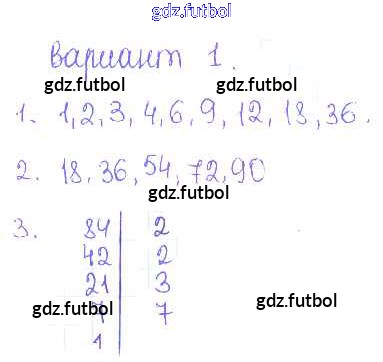 gdz.futbol
gdz.futbol
Вариант 1.
gdz.futbol
gdz.futbol
1. 1, 2, 3, 4, 6, 9, 12, 18, 36.
2. 18, 36, 54, 72, 90
gdz.futbol
3. 84 | 2
42 | 2
21 | 3
gdz.futbol gdz.futbol
7 | 7
1 |
gdz.futbol